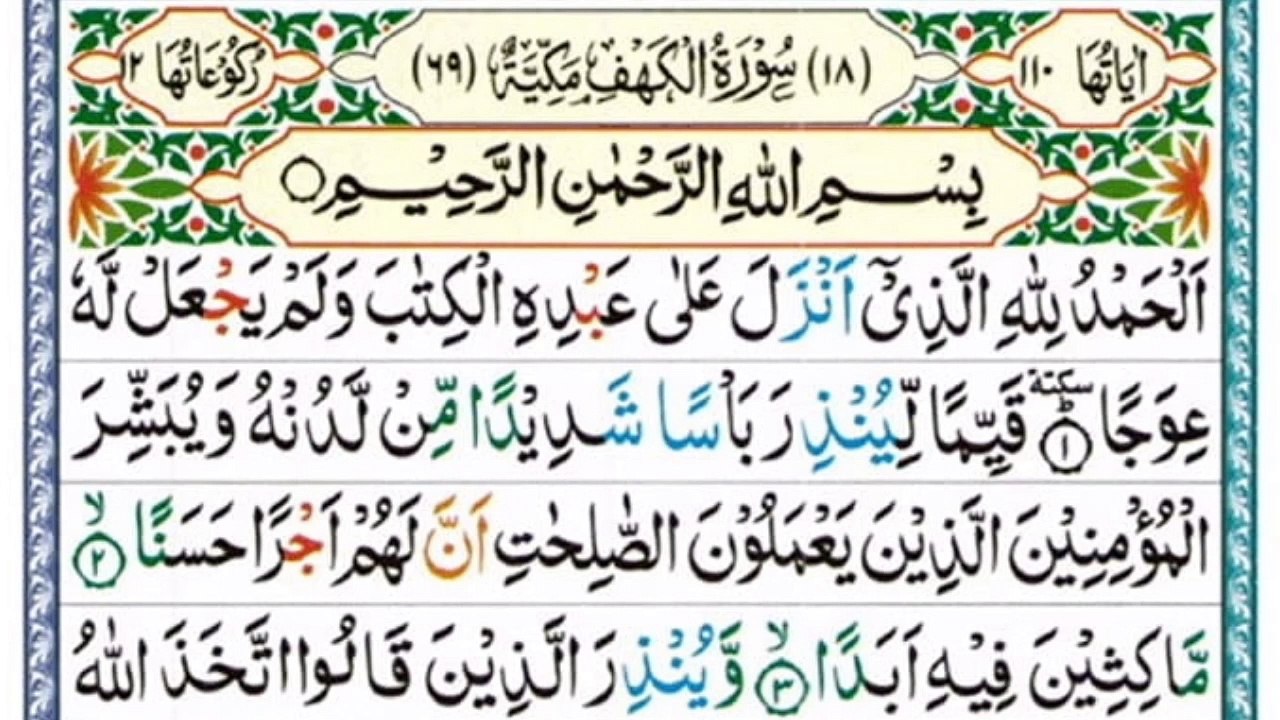 اٰيَاتُهَا ١١٠ (١٨) سُوْرَةُ الْكَهْفِ مَكِّيَّةٌ (٦٩) رُكُوْعَاتُهَا ١٢
بِسْمِ اللهِ الرَّحْمٰنِ الرَّحِيْمِ ○
اَلْحَمْدُ لِلّٰهِ الَّذِيْۤ اَنْزَلَ عَلٰى عَبْدِهِ الْكِتٰبَ وَلَمْ يَجْعَلْ لَّهٗ
عِوَجًا ؕ سكتة ١ قَيِّمًا لِّيُنْذِرَ بَاْسًا شَدِيْدًا مِّنْ لَّدُنْهُ وَيُبَشِّرَ
الْمُؤْمِنِيْنَ الَّذِيْنَ يَعْمَلُوْنَ الصّٰلِحٰتِ اَنَّ لَهُمْ اَجْرًا حَسَنًا ۙ ٢
مَّاكِثِيْنَ فِيْهِ اَبَدًا ۙ ٣ وَّيُنْذِرَ الَّذِيْنَ قَالُوا اتَّخَذَ اللهُ